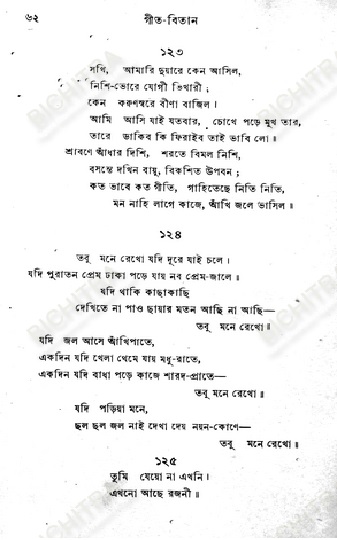 ৬২
গীত-বিতান
১২৩
সখি, আমারি দুয়ারে কেন আসিল,
নিশি-ভোরে যোগী ভিখারী;
কেন করুণস্বরে বীণা বাজিল।
আমি আসি যাই যতবার, চোখে পড়ে মুখ তার,
তারে ডাকিব কি ফিরাইব তাই ভাবি লো।
শ্রাবণে আঁধার দিশি, শরতে বিমল নিশি,
বসন্তে দখিন বায়ু, বিকশিত উপবন;
কত ভাবে কত গীতি, গাহিতেছে নিতি নিতি,
মন নাহি লাগে কাজে, আঁখি জলে ভাসিল।
১২৪
তবু মনে রেখো যদি দূরে যাই চলে।
যদি পুরাতন প্রেম ঢাকা পড়ে যায় নব প্রেম-জালে।
যদি থাকি কাছাকাছি
দেখিতে না পাও ছায়ার মতন আছি না আছি—
তবু মনে রেখো॥
যদি জল আসে আঁখিপাতে,
একদিন যদি খেলা থেমে যায় মধু-রাতে,
একদিন যদি বাধা পড়ে কাজে শারদ-প্রাতে—
তবু মনে রেখো॥
যদি পড়িয়া মনে,
ছল ছল জল নাই দেখা দেয় নয়ন-কোণে—
তবু মনে রেখো॥
১২৫
তুমি যেয়ো না এখনি।
এখনো আছে রজনী॥
BICHITRA